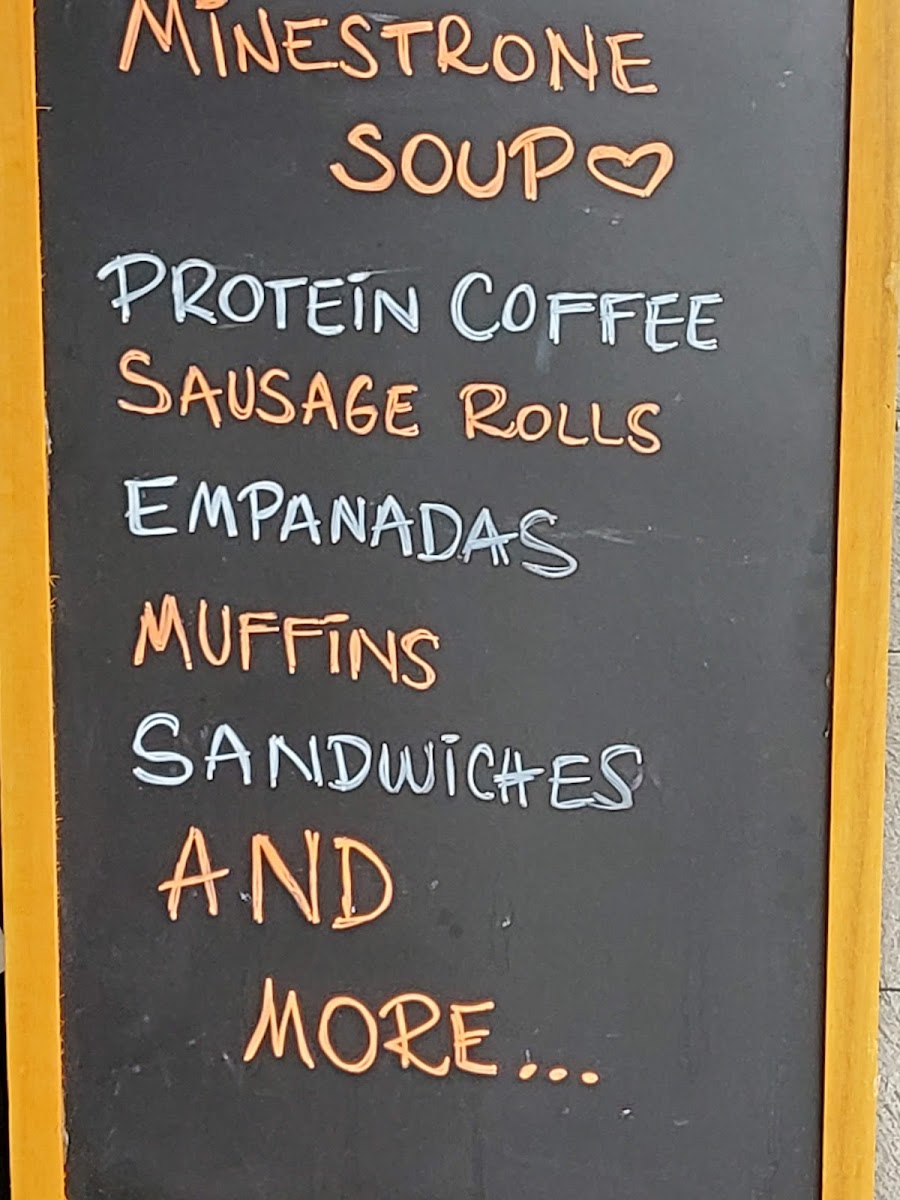 MINESTRONE
SOUP♡
PROTEIN COFFEE
SAUSAGE ROLLS
EMPANADAS
MUFFINS
SANDWICHES
AND
MORE...